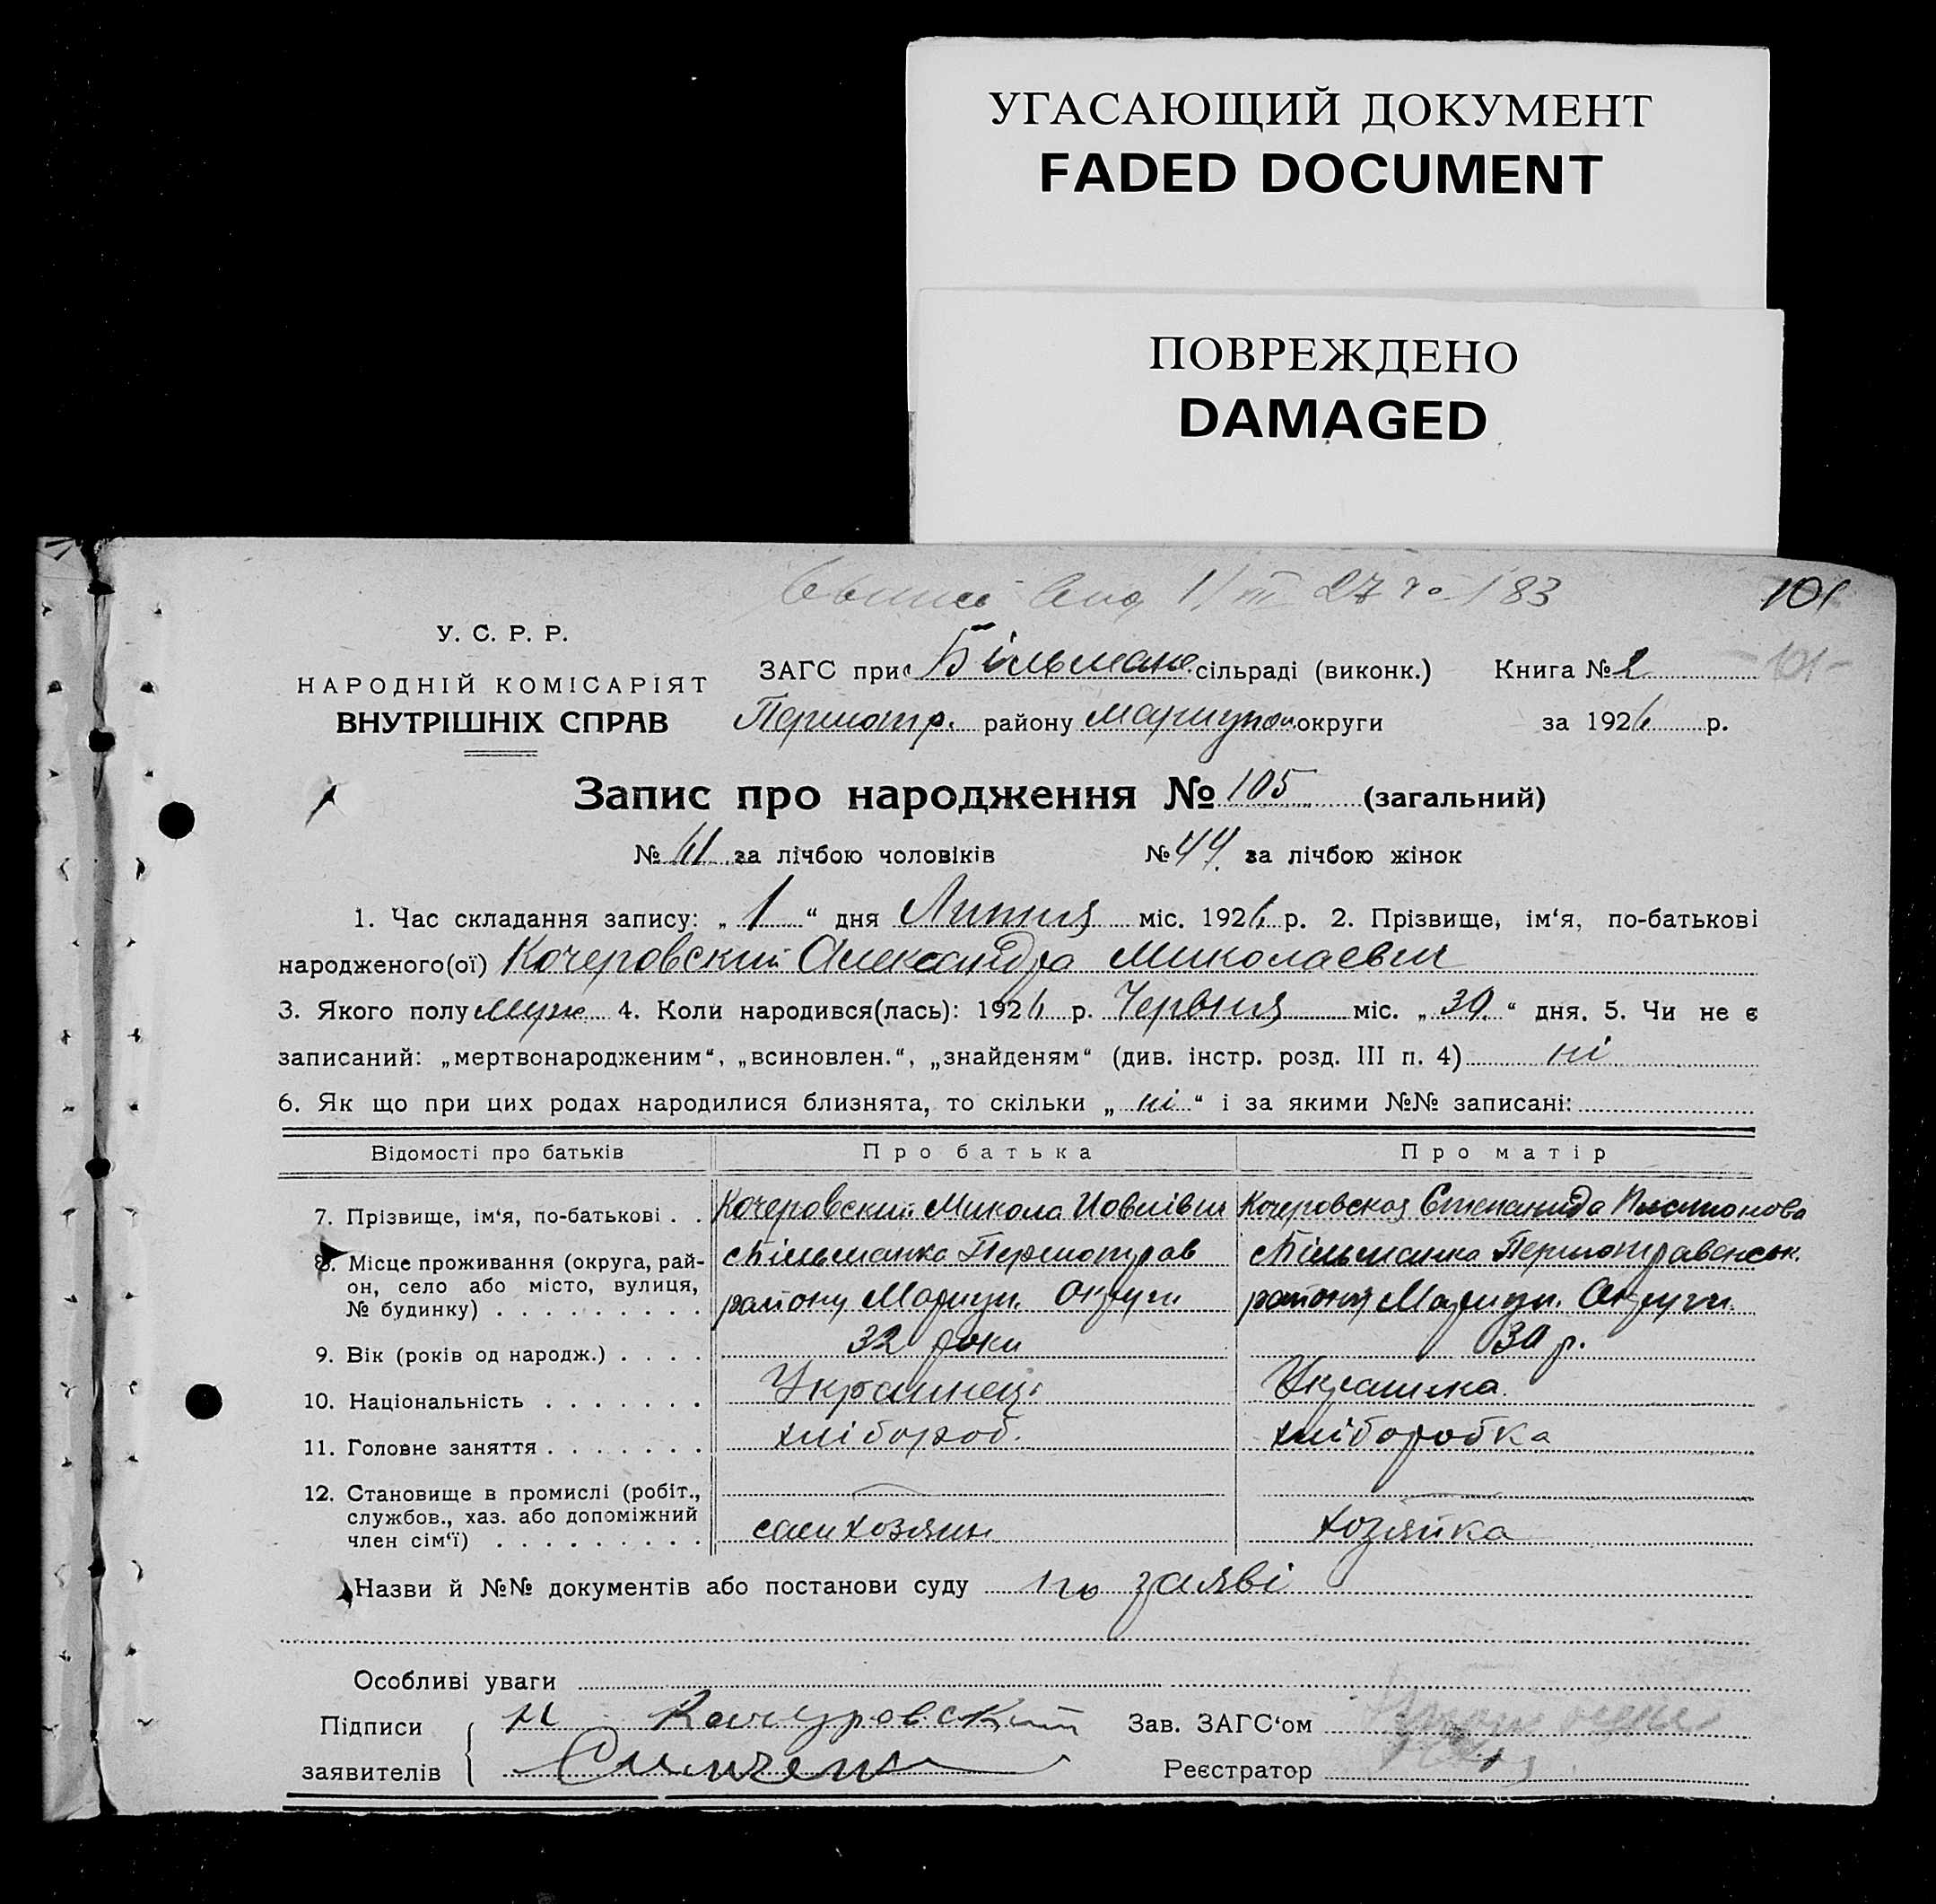 УГАСАЮЩИЙ ДОКУМЕНТ
FADED DOCUMENT
ПОВРЕЖДЕНО
DAMAGED
1/III 27 183
101
У. С. Р. Р.
НАРОДНІЙ КОМІСАРІЯТ
ВНУТРІШНІХ СПРАВ
ЗАГС при Більман. сільраді (виконк.) Книга № 2
101
Першотр. району Мариупол. округи за 1926 р.
Запис про народження № 105 (загальний)
№ 61 за лічбою чоловіків № 44 за лічбою жінок
1. Час складання запису: „ 1 “ дня Липня міс. 1926 р. 2. Прізвище, ім‘я, по-батькові
народженого(ої) Кочеровский Александра Миколаевич
3. Якого полу муж 4. Коли народився(лась): 1926 р. Червня міс. „ 30. “ дня. 5. Чи не є
записаний: „мертвонародженим“, „всиновлен.“, „знайденям“ (див. інстр. розд. III п. 4) ні
6. Як що при цих родах народилися близнята, то скільки „ ні “ і за якими №№ записані:
Відомості про батьків Про батька Про матір
7. Прізвище, ім‘я, по-батькові . . Кочеровский Микола Кочеровская Степанида
8. Місце проживання (округа, рай- Більманка Першотрав Більманка Першотравенськ.
он, село або місто, вулиця,
№ будинку) . . . . . . . . . . району Мариуп. Округи району Мариуп. Округи
9. Вік (років од народж.) . . . . 32 роки 30 р.
10. Національність . . . . . . . Украинец Украинка
11. Головне заняття . . . . . . . хлібороб. хліборобка
12. Становище в промислі (робіт.,
службов., хаз. або допоміжний
член сім‘ї) . . . . . . . . . сам хозяин хозяйка
Назви й №№ документів або постанови суду по заяві
Особливі уваги
Підписи Н Качуровский Зав. ЗАГС‘ом
заявителів Реєстратор